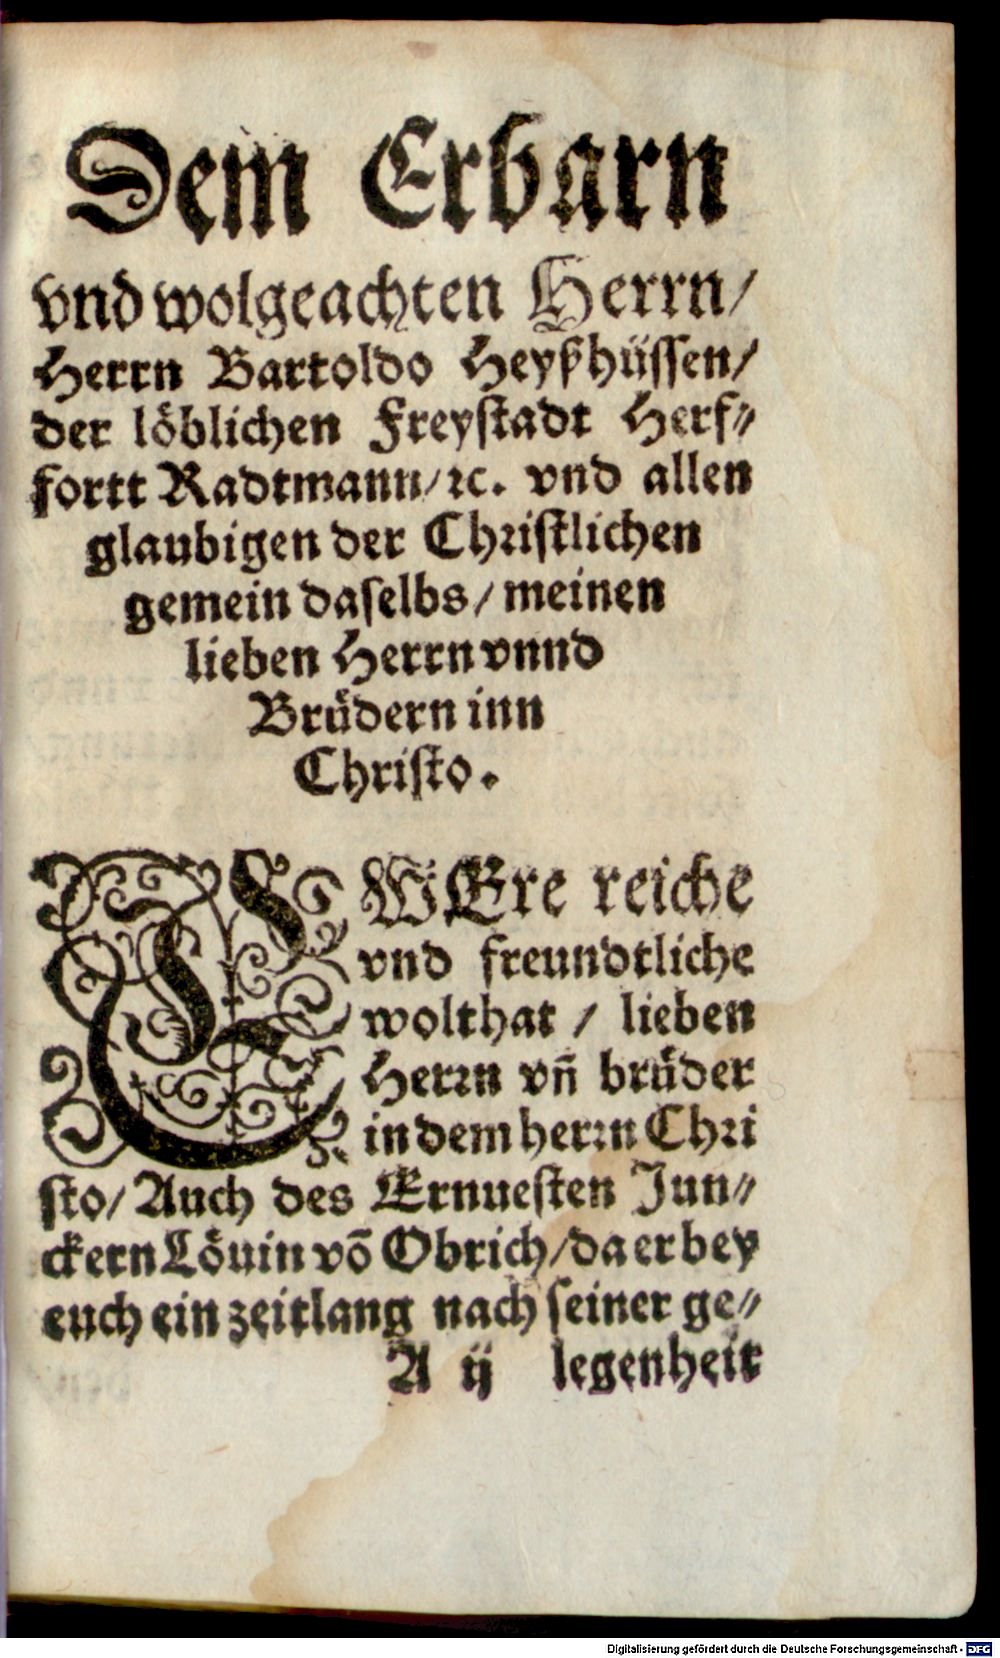 Dem Erbarn
vnd wolgeachten Herrn/
Herrn Bartoldo Heyßhüssen/
der löblichen Freystadt Herf⸗
fortt Radtmann/ ꝛc. vnd allen
glaubigen der Christlichen
gemein daselbs/ meinen
lieben Herrn vnnd
Brüdern inn
Christo.
EWEre reiche
vnd freundtliche
wolthat / lieben
Herrn vn̄ brüder
in dem herrn Chri
sto/ Auch des Ernuesten Jun⸗
ckern Löuin vō Obrich/ da er bey
euch ein zeitlang nach seiner ge⸗
A ij legenheit
Digitalisierung gefördert durch die Deutsche Forschungsgemeinschaft - DFG